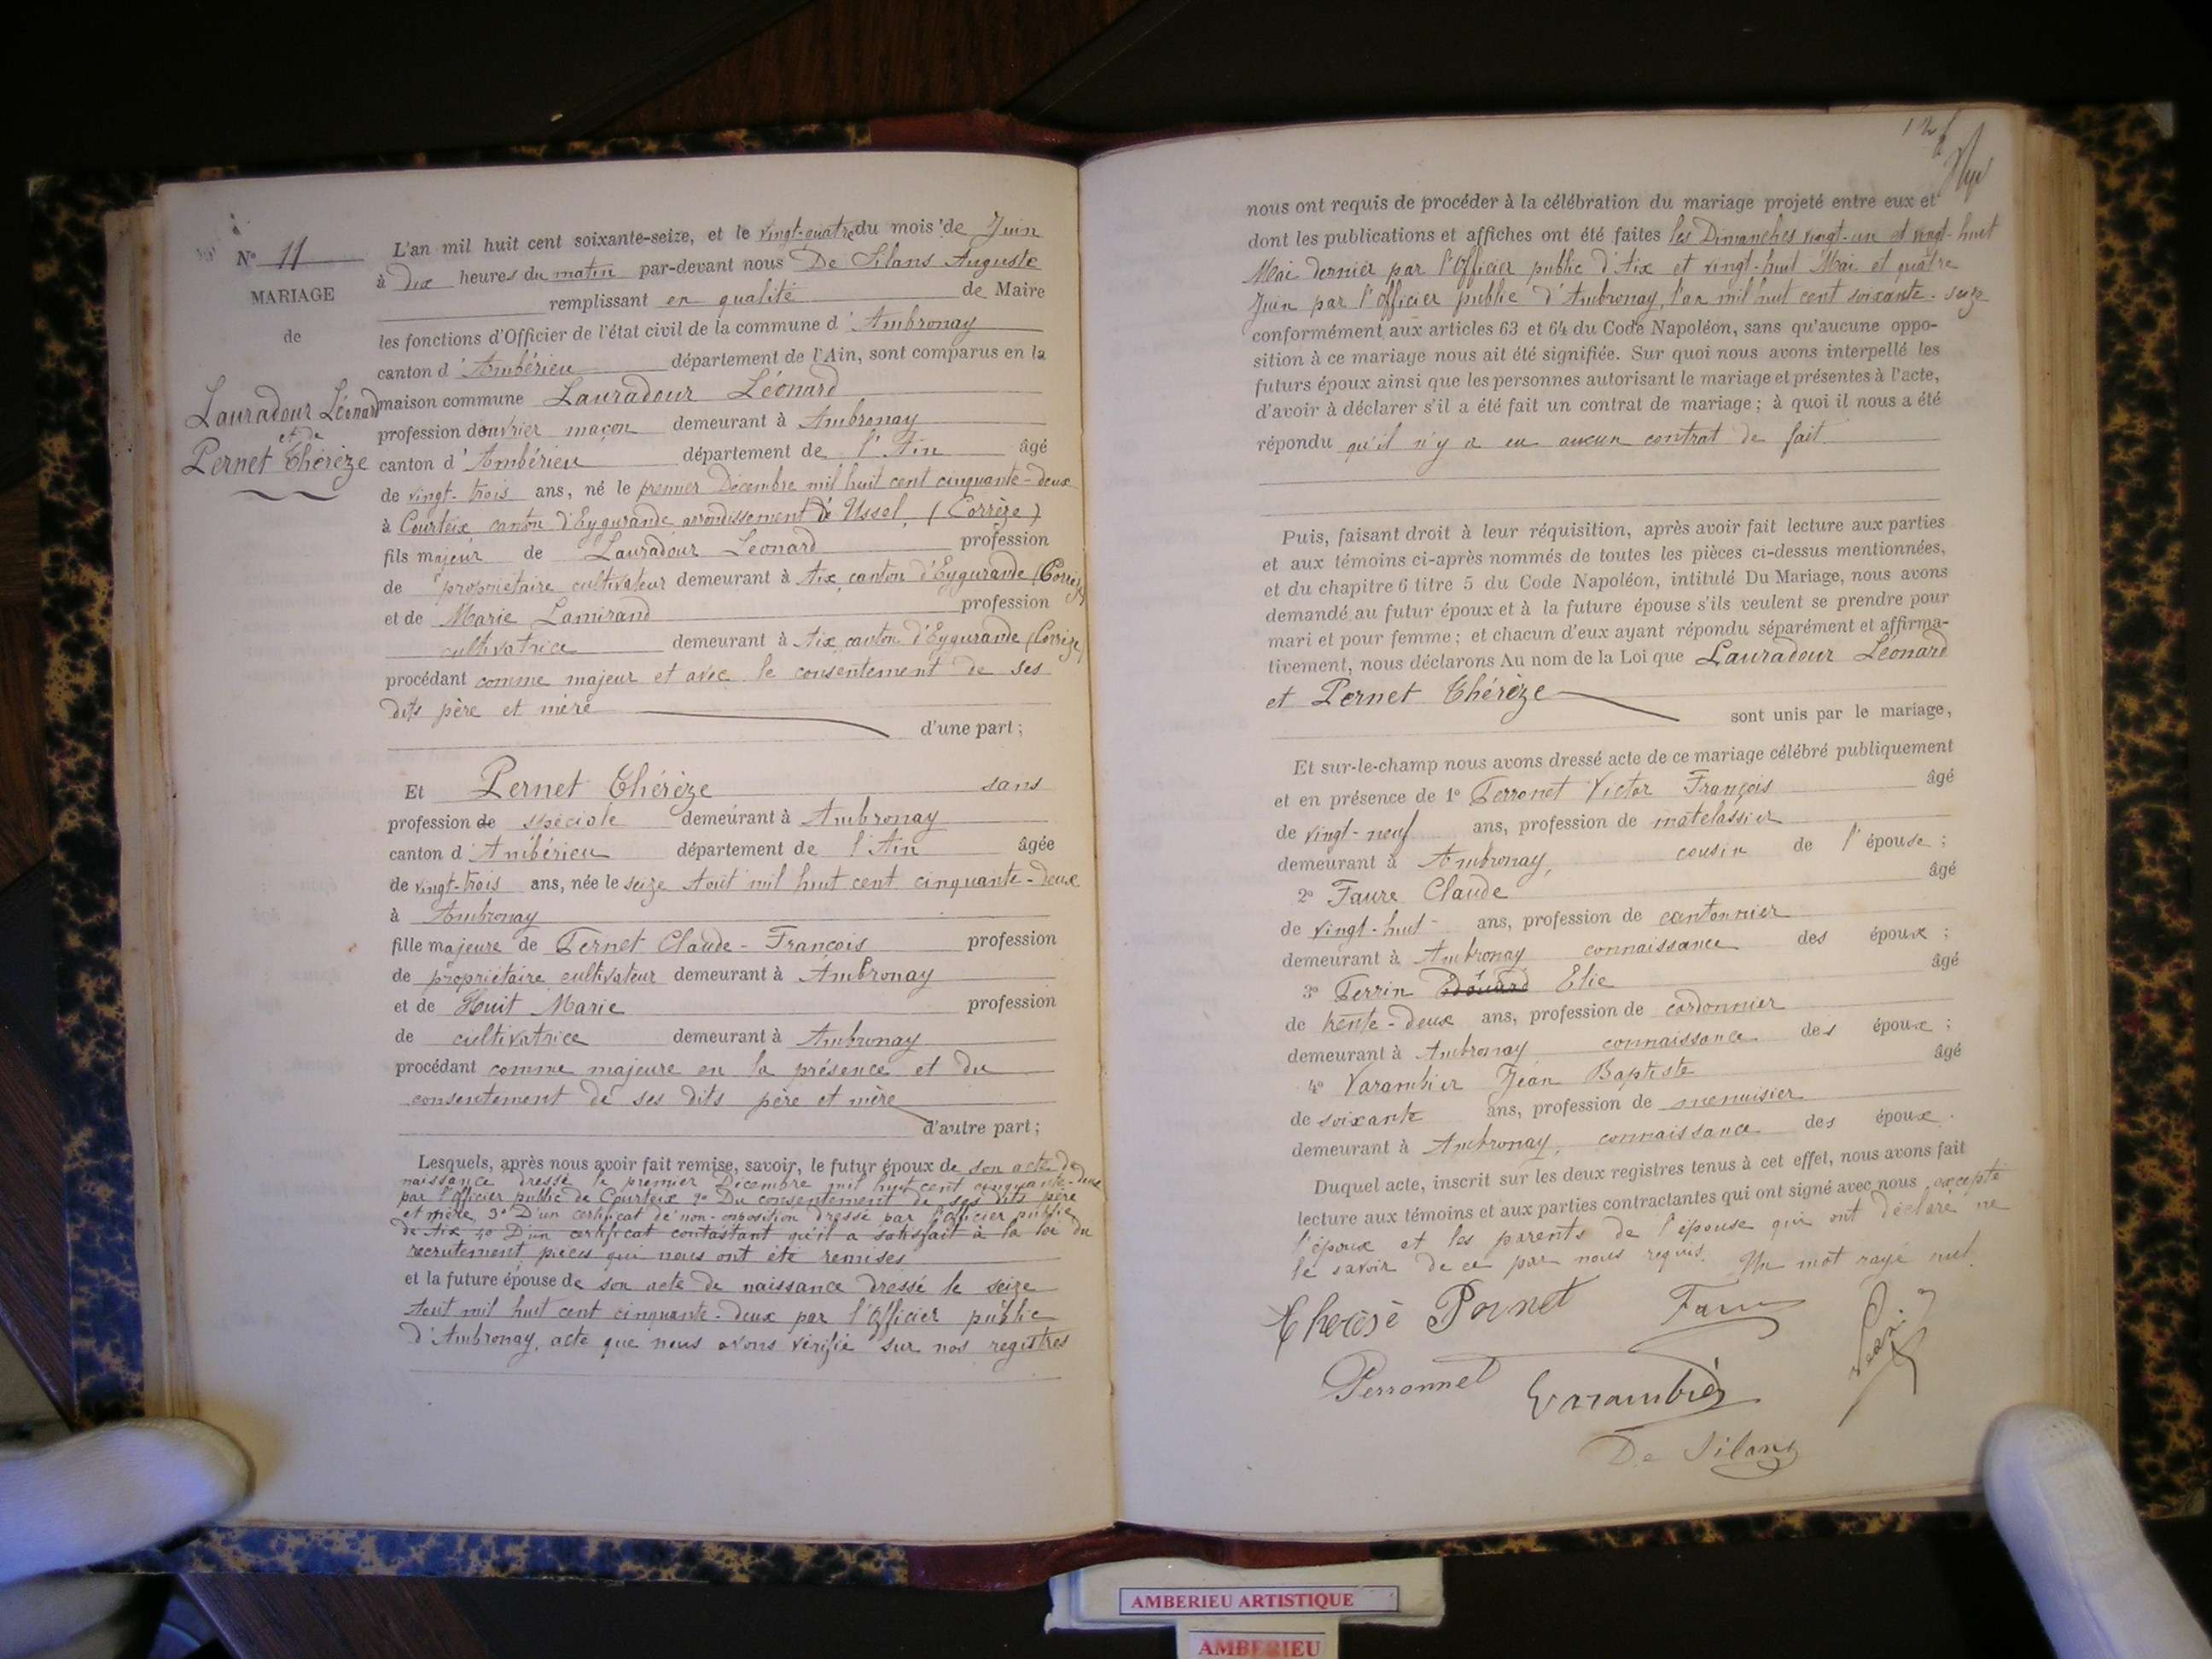 N° 11
MARIAGE
de
Lauradour Léonard
et de
Pernet Thérèze
L'an mil huit cent soixante-seize, et le vingt-quatre du mois de Juin
à dix heures du matin par-devant nous De Silans Auguste
remplissant en qualité de Maire
les fonctions d'Officier de l'état civil de la commune d'Ambronay
canton d'Ambérieu département de l'Ain, sont comparus en la
maison commune Lauradour Léonard
profession d'ouvrier maçon demeurant à Ambronay
canton d'Ambérieu département de l'Ain âgé
de vingt-trois ans, né le premier Décembre mil huit cent cinquante-deux
à Courteix canton d'Eygurande arrondissement de Ussel, (Corrèze)
fils majeur de Lauradour Léonard profession
de propriétaire cultivateur demeurant à Aix, canton d'Eygurande (Corrèze)
et de Marie Lamirand profession
cultivatrice demeurant à Aix, canton d'Eygurande (Corrèze)
procédant comme majeur et avec le consentement de ses
dits père et mère
d'une part;
Et Pernet Thérèze sans
profession de spéciale demeurant à Ambronay
canton d'Ambérieu département de l'Ain âgée
de vingt-trois ans, née le seize Août mil huit cent cinquante-deux
à Ambronay
fille majeure de Pernet Claude-François profession
de propriétaire cultivateur demeurant à Ambronay
et de Huit Marie profession
de cultivatrice demeurant à Ambronay
procédant comme majeure en la présence et du
consentement de ses dits père et mère
d'autre part;
Lesquels, après nous avoir fait remise, savoir, le futur époux de son acte de
naissance dressé le premier Décembre mil huit cent cinquante-deux
par l'officier public de Courteix 2° Du consentement de ses dits père
et mère, 3° D'un certificat de non-opposition dressé par l'Officier public
de Aix 4° D'un certificat contastant qu'il a satisfait à la loi du
recrutement, pièces qui nous ont été remises
et la future épouse de son acte de naissance dressé le seize
Août mil huit cent cinquante-deux par l'Officier public
d'Ambronay, acte que nous avons vérifié sur nos registres
126
nous ont requis de procéder à la célébration du mariage projeté entre eux et
dont les publications et affiches ont été faites les Dimanches vingt-un et vingt-huit
Mai dernier par l'Officier public d'Aix et vingt-huit Mai et quatre
Juin par l'Officier public d'Ambronay, l'an mil huit cent soixante-seize
conformément aux articles 63 et 64 du Code Napoléon, sans qu'aucune oppo-
sition à ce mariage nous ait été signifiée. Sur quoi nous avons interpellé les
futurs époux ainsi que les personnes autorisant le mariage et présentes à l'acte,
d'avoir à déclarer s'il a été fait un contrat de mariage; à quoi il nous a été
répondu qu'il n'y a eu aucun contrat de fait.
Puis, faisant droit à leur réquisition, après avoir fait lecture aux parties
et aux témoins ci-après nommés de toutes les pièces ci-dessus mentionnées,
et du chapitre 6 titre 5 du Code Napoléon, intitulé Du Mariage, nous avons
demandé au futur époux et à la future épouse s'ils veulent se prendre pour
mari et pour femme; et chacun d'eux ayant répondu séparément et affirma-
tivement, nous déclarons Au nom de la Loi que Lauradour Léonard
et Pernet Thérèze
sont unis par le mariage,
Et sur-le-champ nous avons dressé acte de ce mariage célébré publiquement
et en présence de 1° Perronet Victor François âgé
de vingt-neuf ans, profession de matelassier
demeurant à Ambronay, cousin de l'épouse;
2° Faure Claude âgé
de vingt-huit ans, profession de cantonnier
demeurant à Ambronay connaissance des époux;
3° Perrin Edouard Elie âgé
de trente-deux ans, profession de cordonnier
demeurant à Ambronay connaissance des époux;
4° Varambier Jean Baptiste âgé
de soixante ans, profession de menuisier
demeurant à Ambronay, connaissance des époux.
Duquel acte, inscrit sur les deux registres tenus à cet effet, nous avons fait
lecture aux témoins et aux parties contractantes qui ont signé avec nous excepté
l'époux et les parents de l'épouse qui ont déclaré ne
le savoir de ce par nous requis. Un mot rayé nul.
Therèsè Pernet Faure
Perronnet Varambier
De Silans
AMBERIEU ARTISTIQUE
AMBERIEU